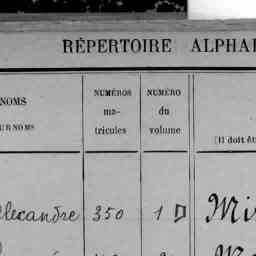 RÉPERTOIRE ALPHA
NOMS
URNOMS
NUMÉROS
ma-
tricules
NUMÉRO
du
volume
(Il doit êt
lexandre 350 1 D Mi